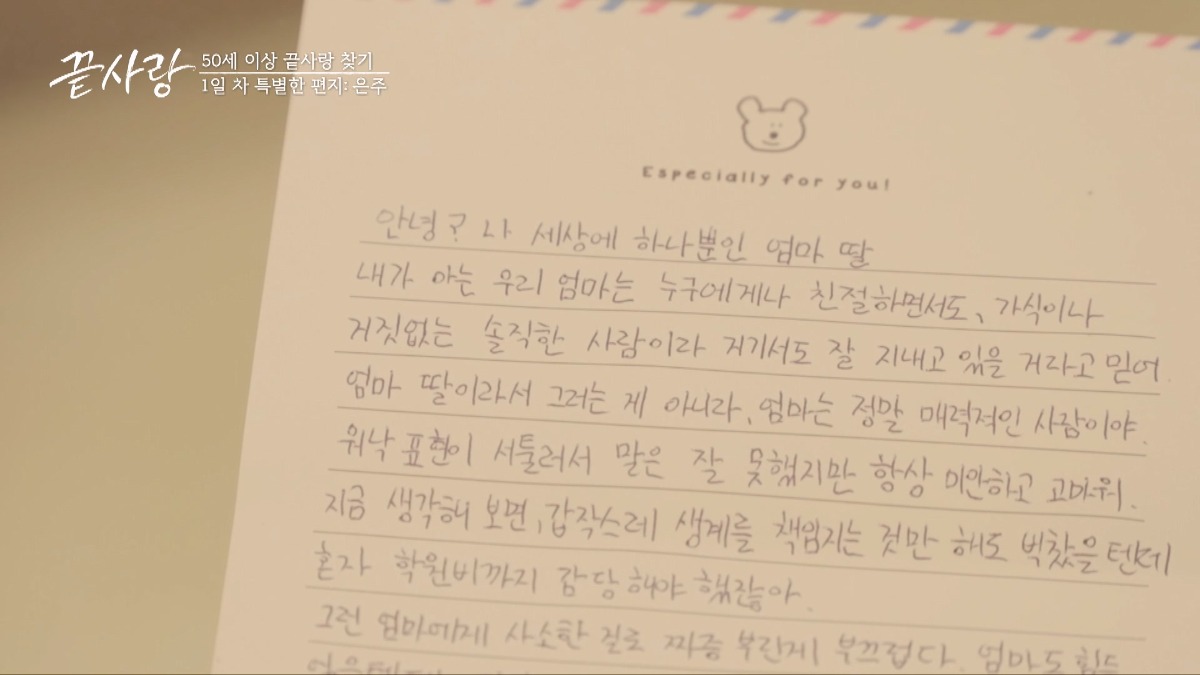 끝사랑
50세 이상 끝사랑 찾기
1일 차 특별한 편지: 은주
Especially for you!
안녕? 나 세상에 하나뿐인 엄마 딸
내가 아는 우리 엄마는 누구에게나 친절하면서도, 가식이나
거짓없는 솔직한 사람이라 거기서도 잘 지내고 있을 거라고 믿어.
엄마 딸이라서 그러는 게 아니라, 엄마는 정말 매력적인 사람이야.
워낙 표현이 서툴러서 말은 잘 못했지만 항상 미안하고 고마워.
지금 생각해 보면, 갑작스레 생계를 책임지는 것만 해도 벅찼을텐데
혼자 학원비까지 감당해야 했잖아.
그런 엄마에게 사소한 일로 짜증 부린게 부끄럽다. 엄마도 힘든